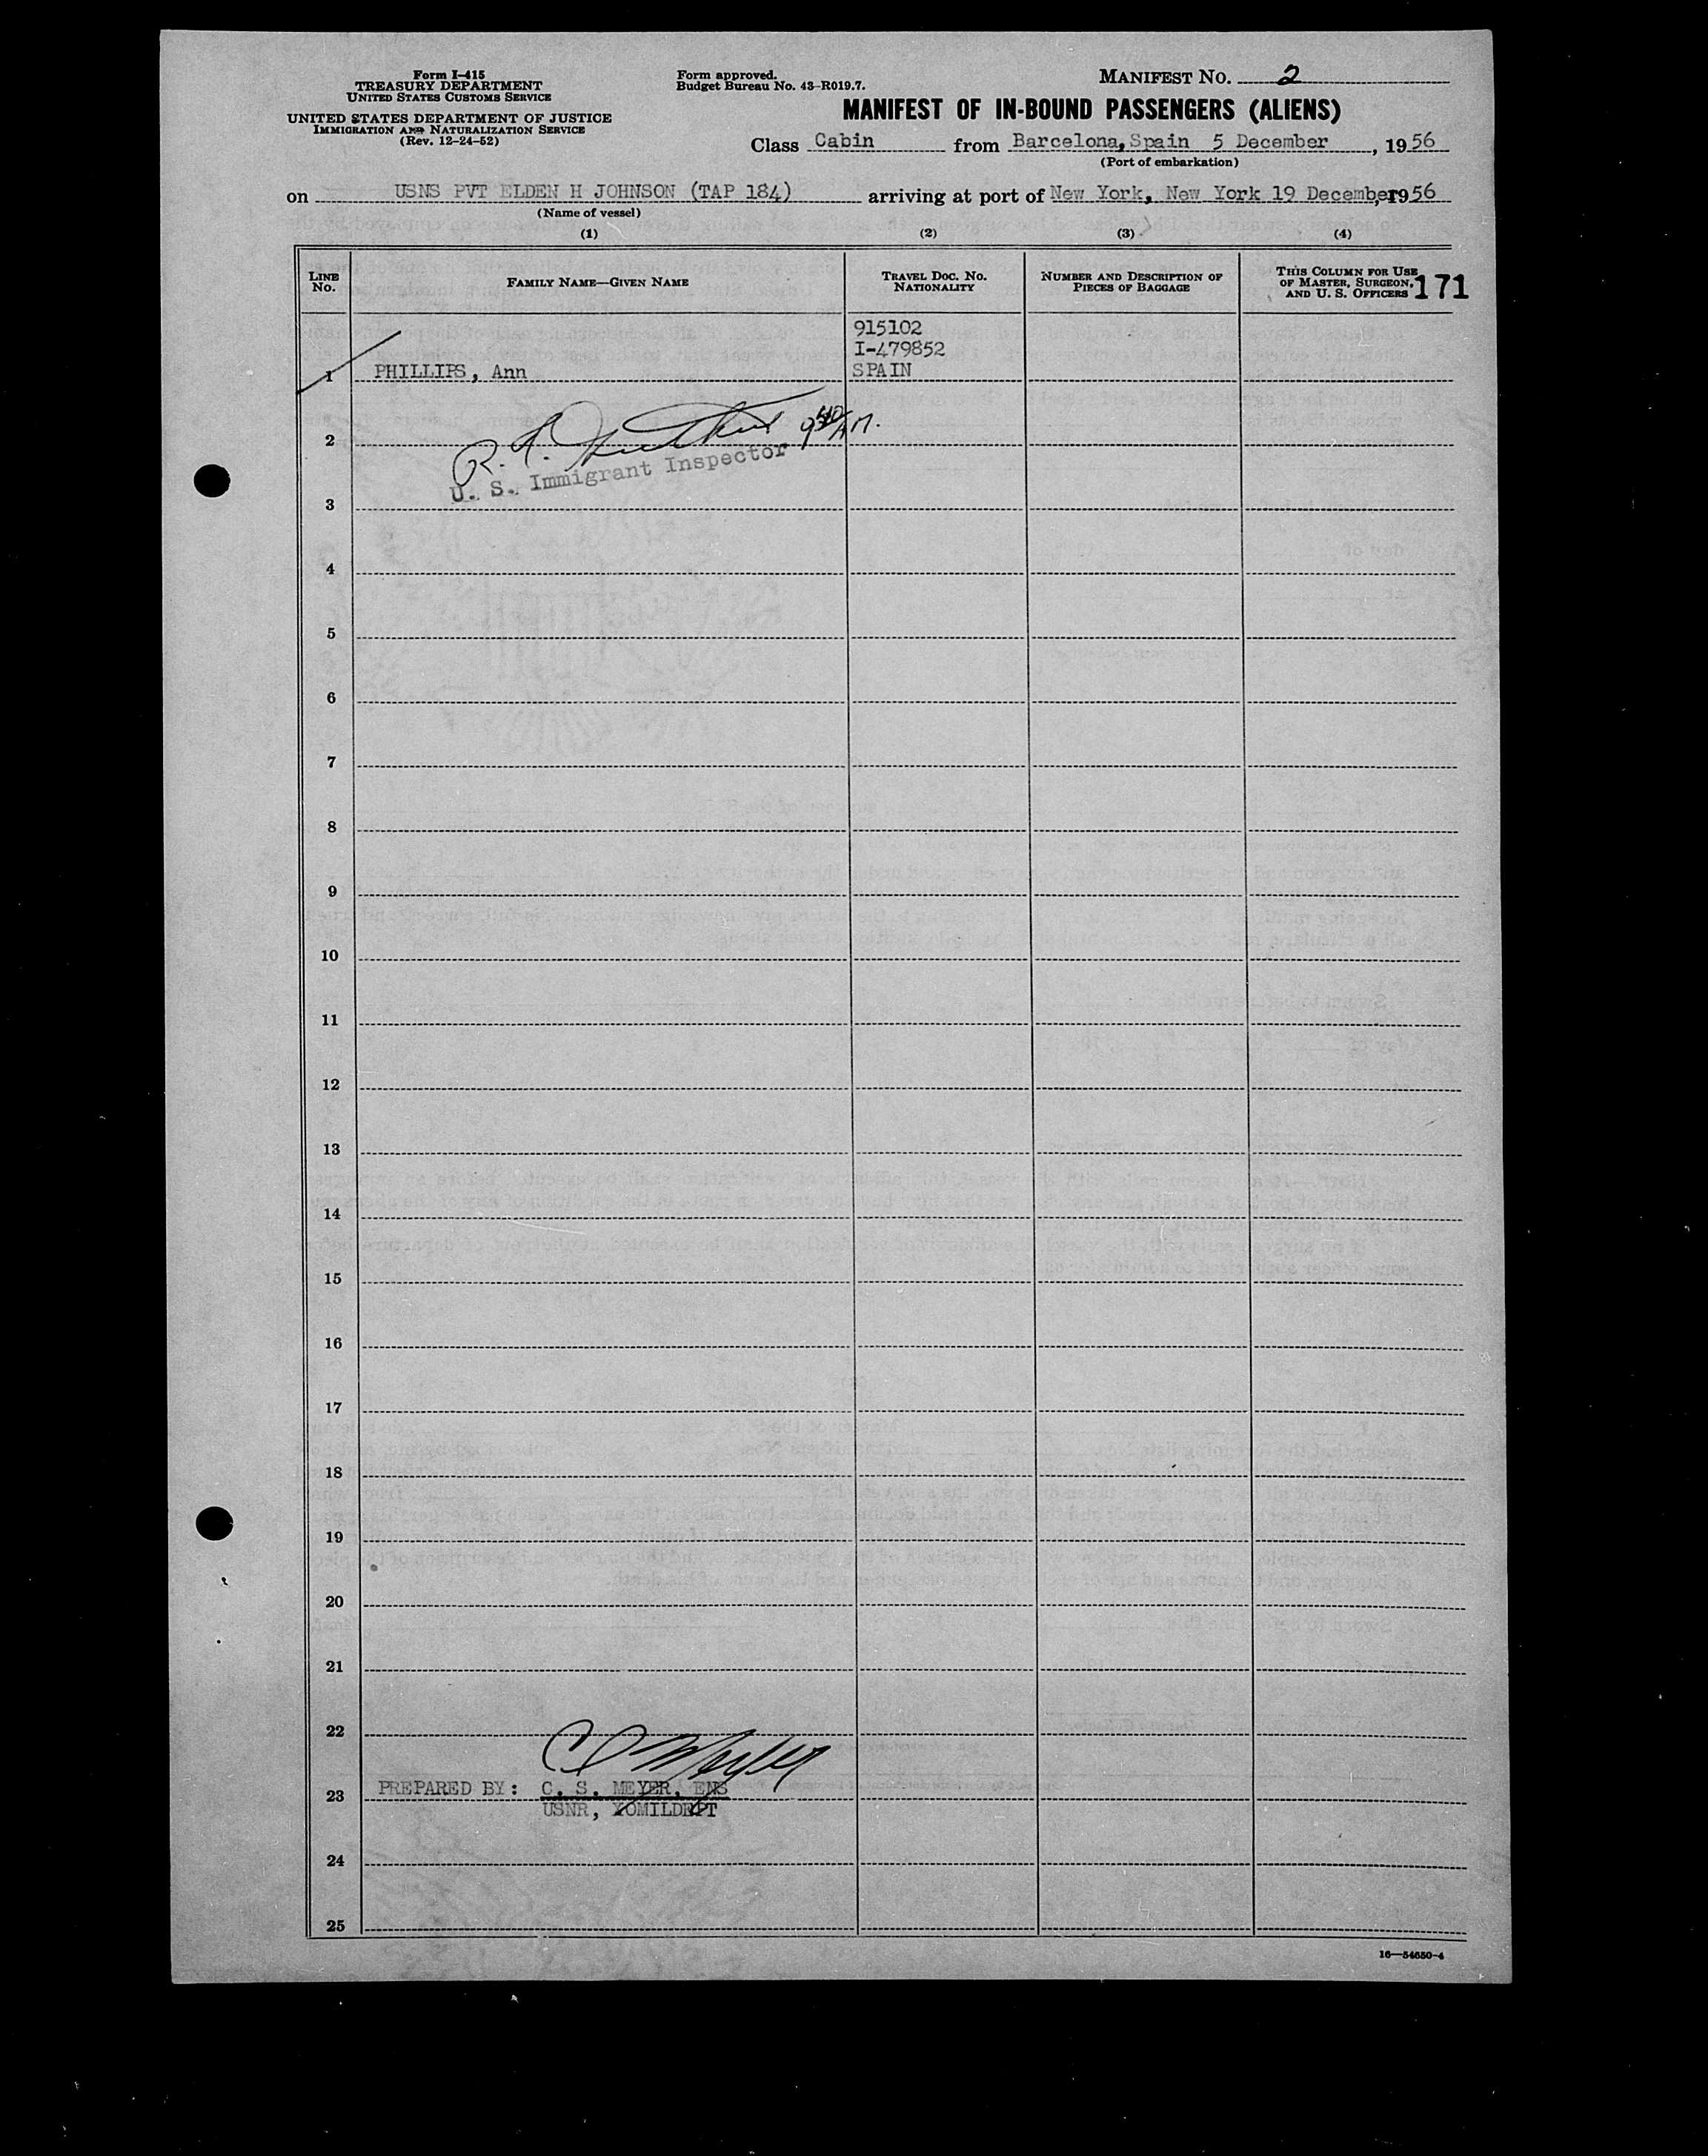 Form I-415
TREASURY DEPARTMENT
UNITED STATES CUSTOMS SERVICE
UNITED STATES DEPARTMENT OF JUSTICE
IMMIGRATION AND NATURALIZATION SERVICE
(Rev. 12-24-52)
Form approved.
Budget Bureau No. 43-R019.7.
MANIFEST NO. 2
MANIFEST OF IN-BOUND PASSENGERS (ALIENS)
Class Cabin from Barcelona, Spain 5 December, 1956
(Port of embarkation)
on USNS PVT ELDEN H JOHNSON (TAP 184) arriving at port of New York, New York 19 December, 1956
(Name of vessel)
(1) (2) (3) (4)
LINE NO.
FAMILY NAME—GIVEN NAME
TRAVEL DOC. NO.
NATIONALITY
NUMBER AND DESCRIPTION OF
PIECES OF BAGGAGE
THIS COLUMN FOR USE
OF MASTER, SURGEON,
AND U. S. OFFICERS
171
915102
I-479852
1 PHILLIPS, Ann SPAIN
2 R. A.
U. S. Immigrant Inspector
3
4
5
6
7
8
9
10
11
12
13
14
15
16
17
18
19
20
21
22
C S Meyer
23 PREPARED BY: C. S. MEYER, ENS
USNR, XOMILDEPT
24
25
16—54650-4